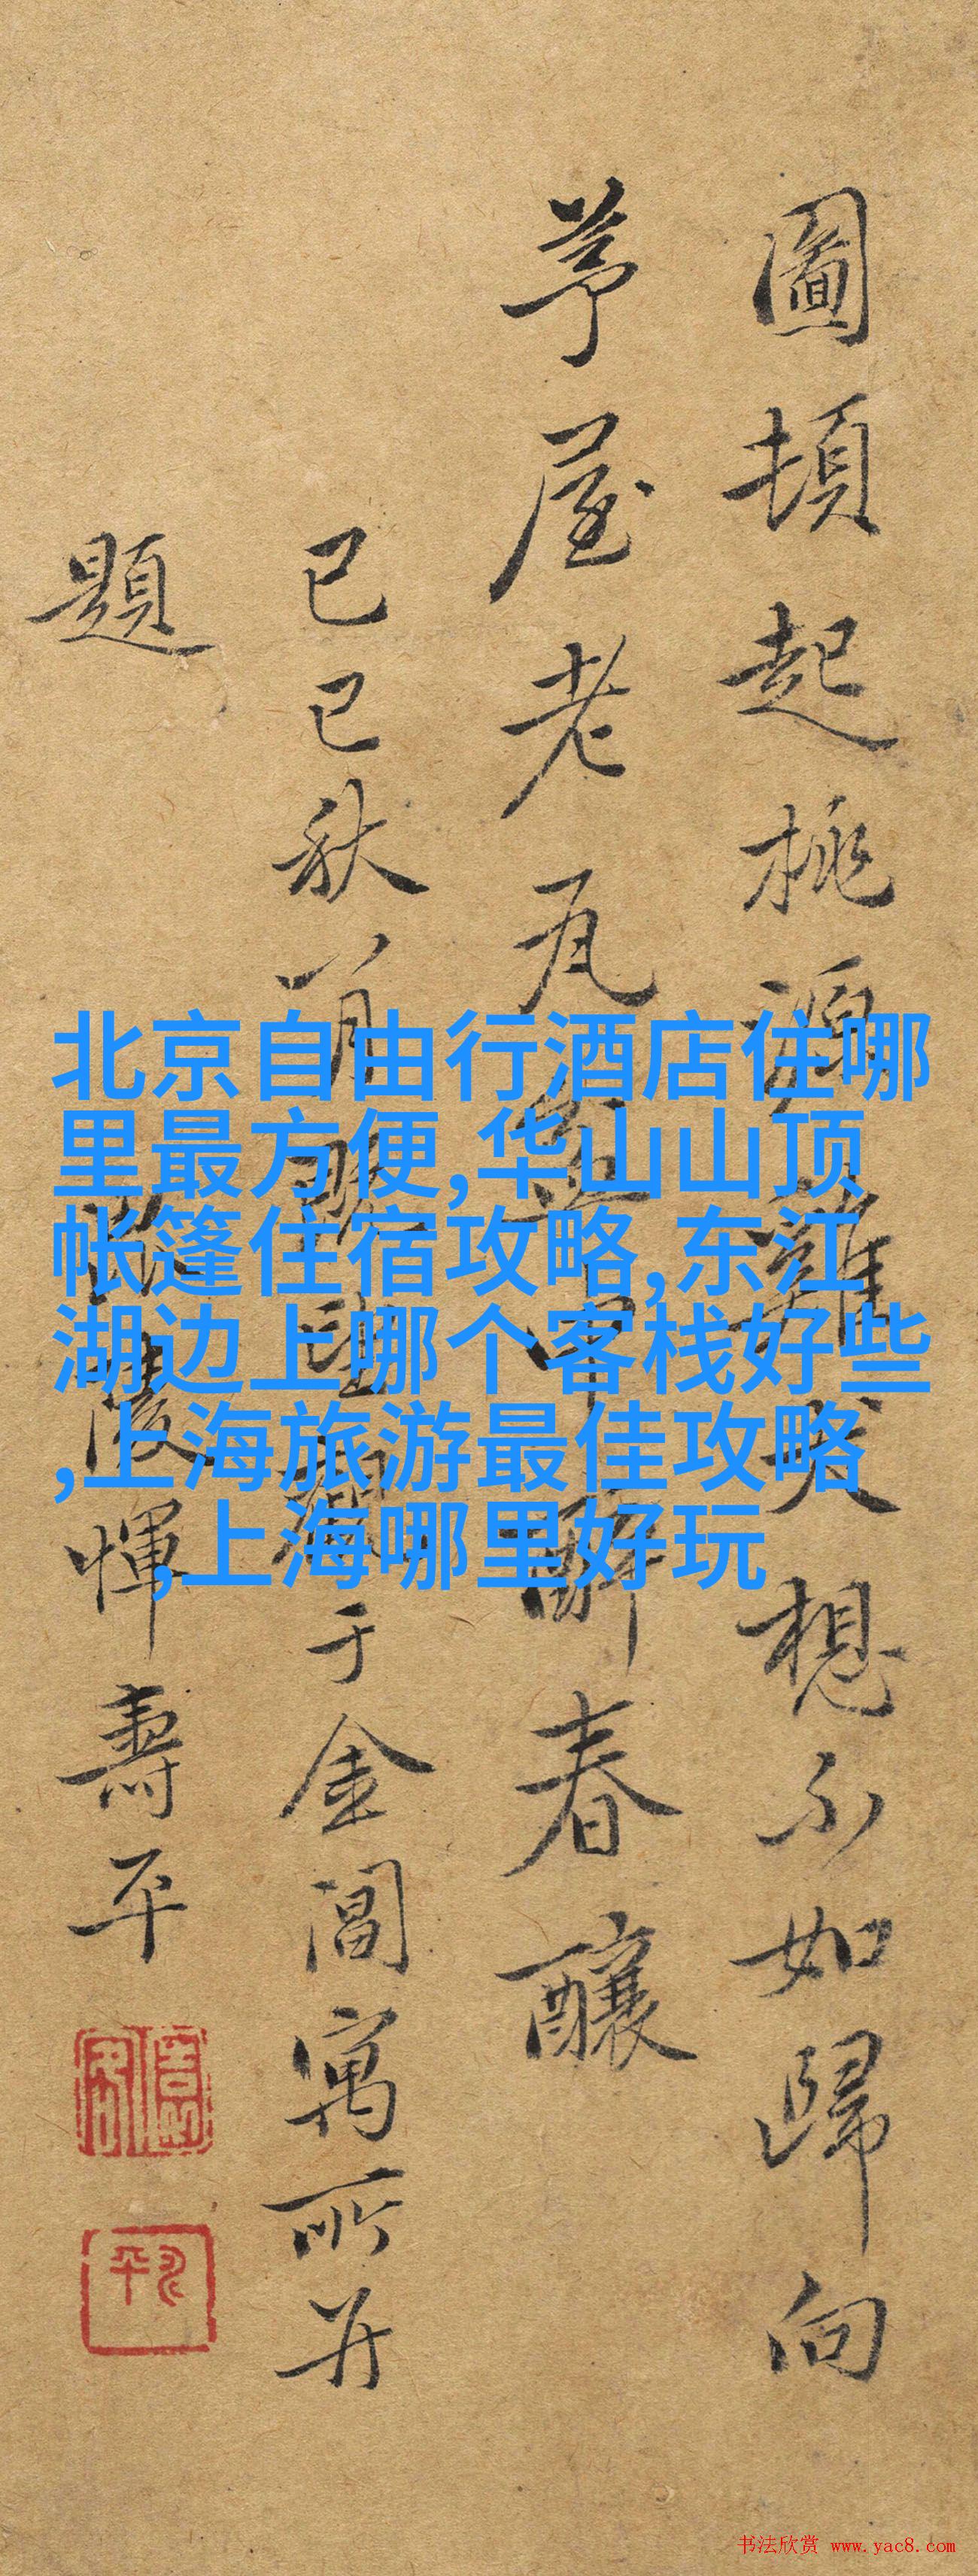 圖頓起桃源雞犬想不如歸向
茅屋老瓦盆中醉春釀
己巳秋八月于金閶寓所并
題陵惲壽平
北京自由行酒店住哪
里最方便,华山山顶
帐篷住宿攻略,东江
湖边上哪个客栈好些
,上海旅游最佳攻略
,上海哪里好玩
书法欣赏 www.yac8.com